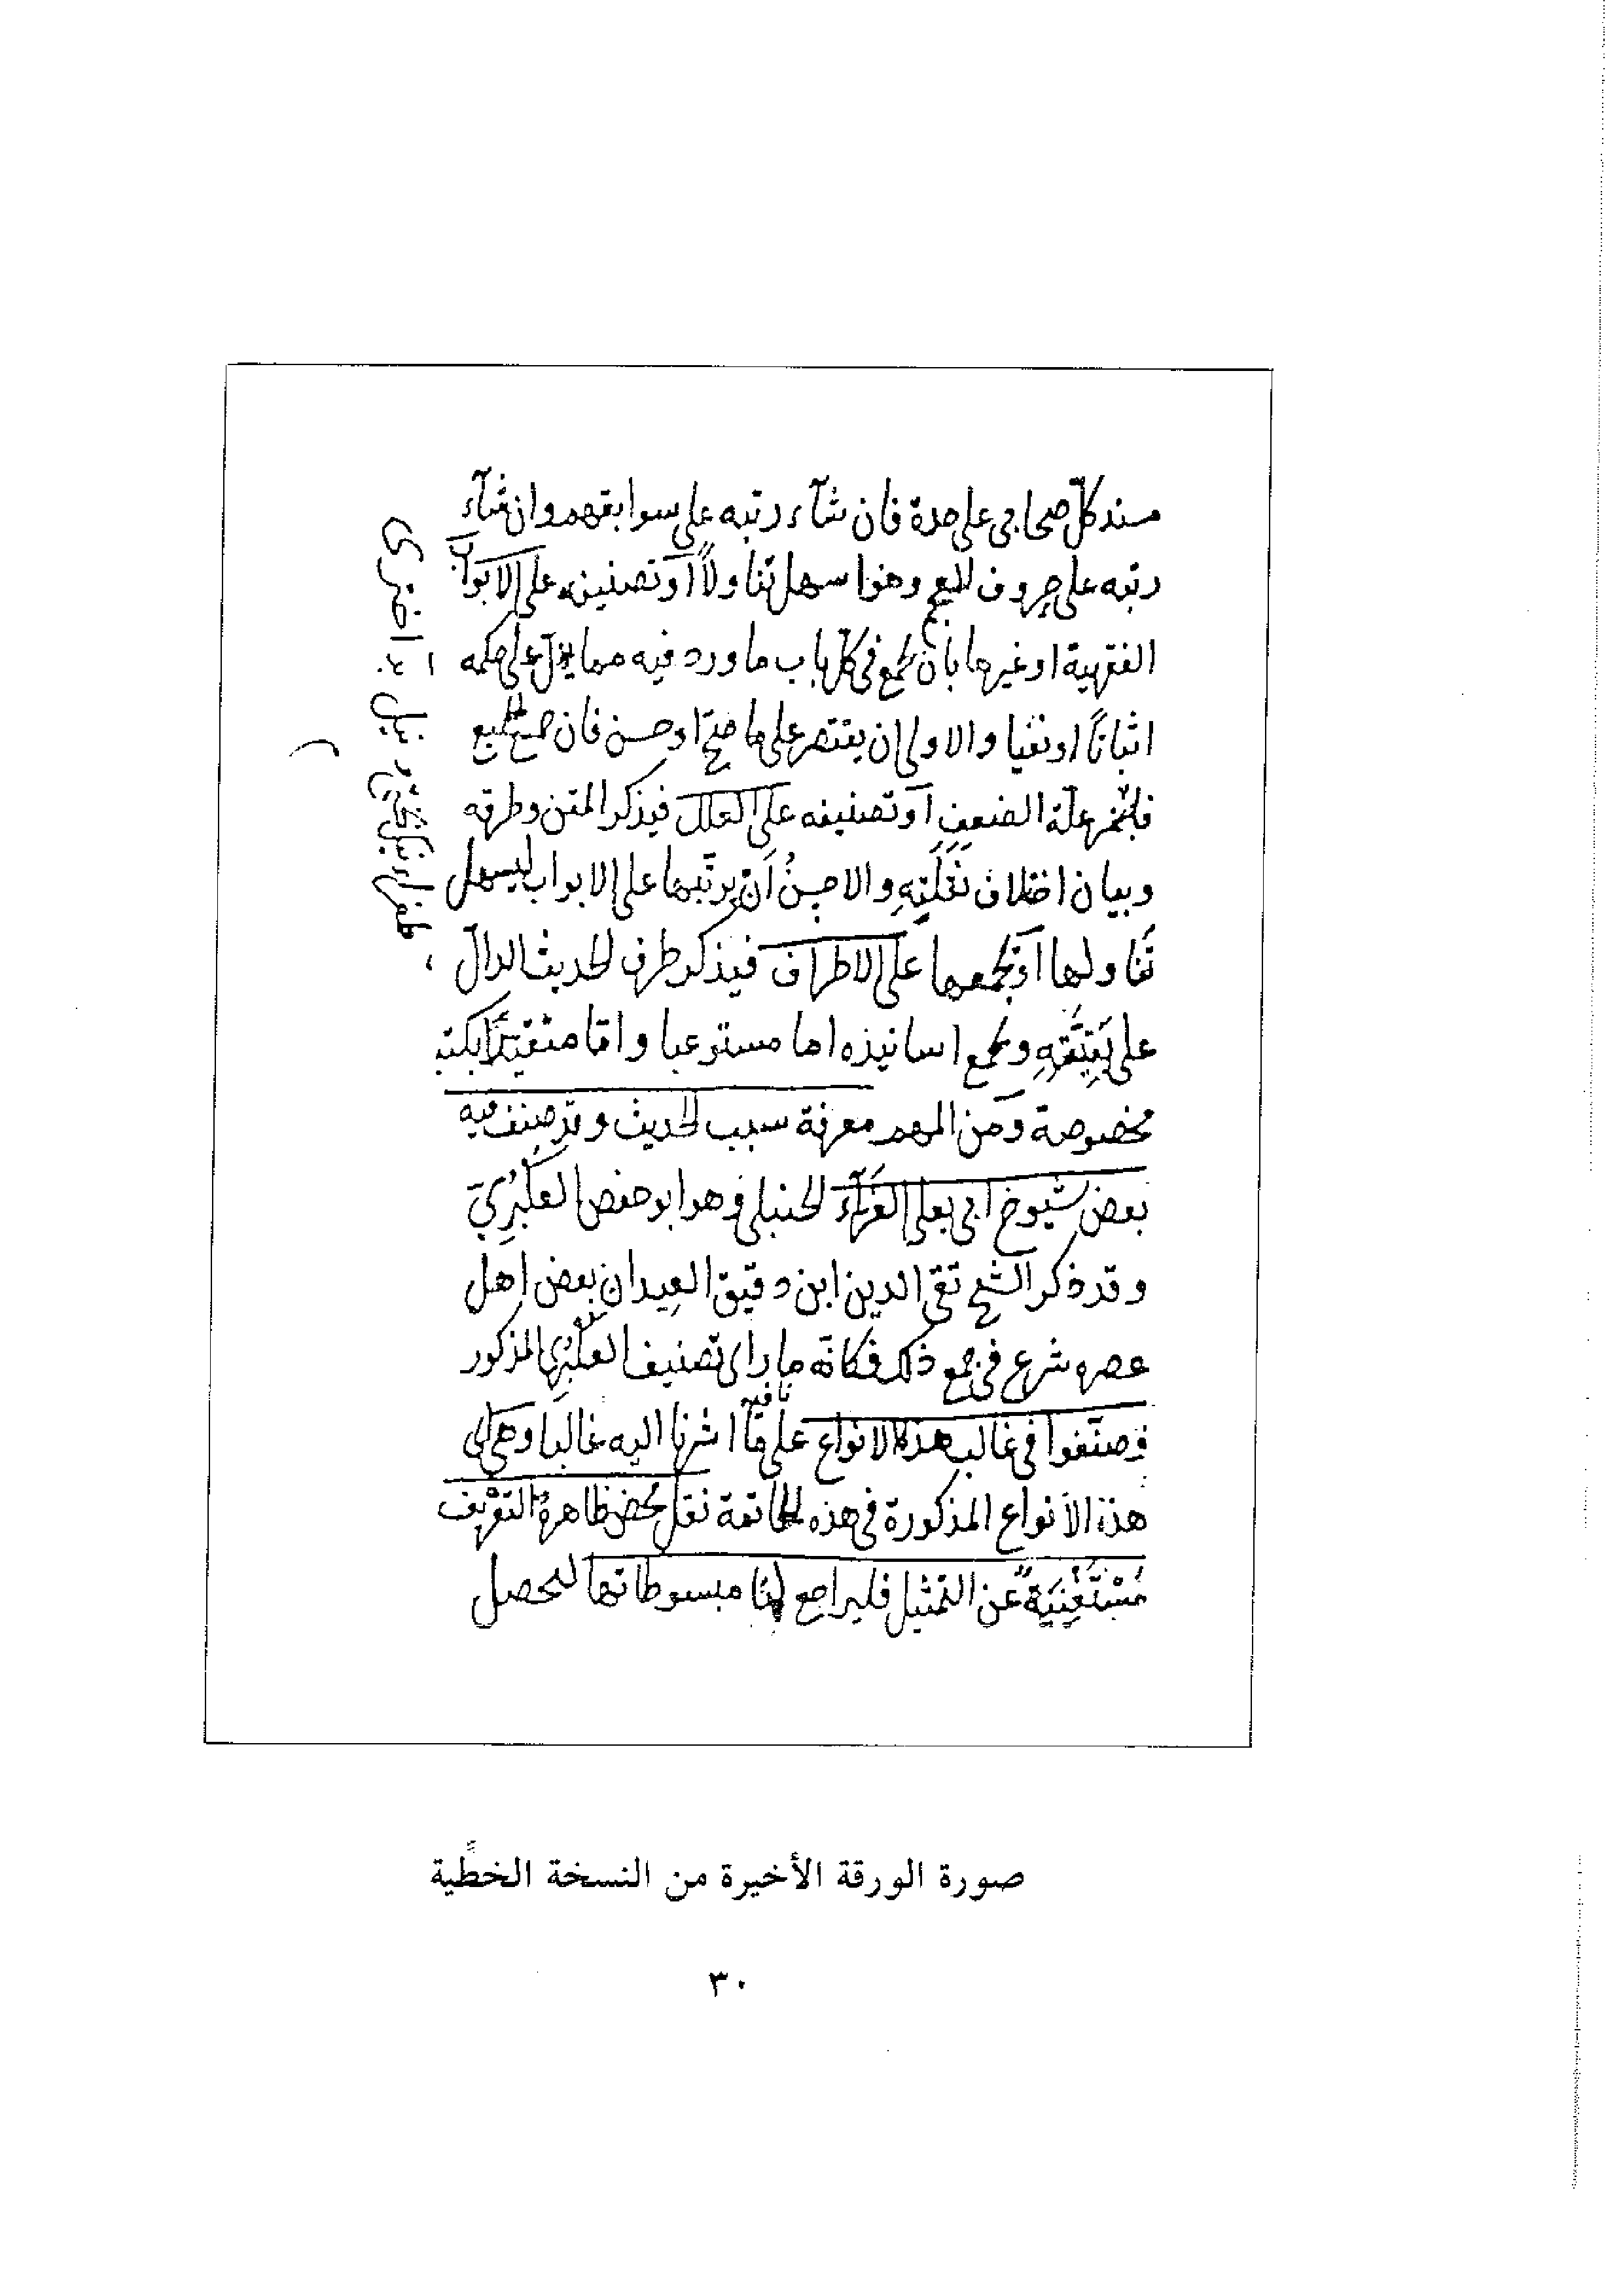 مسند كلّ صحابي على حدة فان شآء رتبه على سوابقهم وان شآء
رتبه على حروف المعجم وهذا سهل تناولاً أو تصنيفه على الابواب
الفقهية او غيرها بان يجمع في كلّ باب ما ورد فيه مما يدلّ على حكمه
اثباتاً او نفيا والاولى ان يقتصر على ما صحّ او حسن فان جمع الجميع
فليبيّن علّة الضعيف أو تصنيفه على العلل فيذكر المتن وطرقه
وبيان اختلاف نَقَلَتِهِ والاحسنُ أن يرتّبها على الابواب ليسهل
تَناولها أو يجمعها على الاطراف فيذكر طرف الحديث الدالّ
على بَقِيَّتِهِ ويجمع اسانيده اما مستوعبا وامّا متقيّدًا بكتب
مخصوصة ومن المهم معرفة سبب الحديث وقد صنف فيه
بعض شيوخ ابي يعلى الفرّآء الحنبلي وهو ابو حفص العكبُرِيّ
وقد ذكر الشيخ تقي الدين ابن دقيق العيد ان بعض اهل
عصره شرع في جمع ذلك فكانّه ما راى تصنيف العكبُري المذكور
وصنّفوا في غالب هذه الانواع على مآ اشرنا اليه غالبا وهي اي
هذه الأنواع المذكورة في هذه الخاتمة نقل محض ظاهرةُ التعريف
مُسْتَغْنِيَةٌ عن التمثيل فليراجع لها مبسوطاتها ليحصل
صورة الورقة الأخيرة من النسخة الخطّية
٣٠